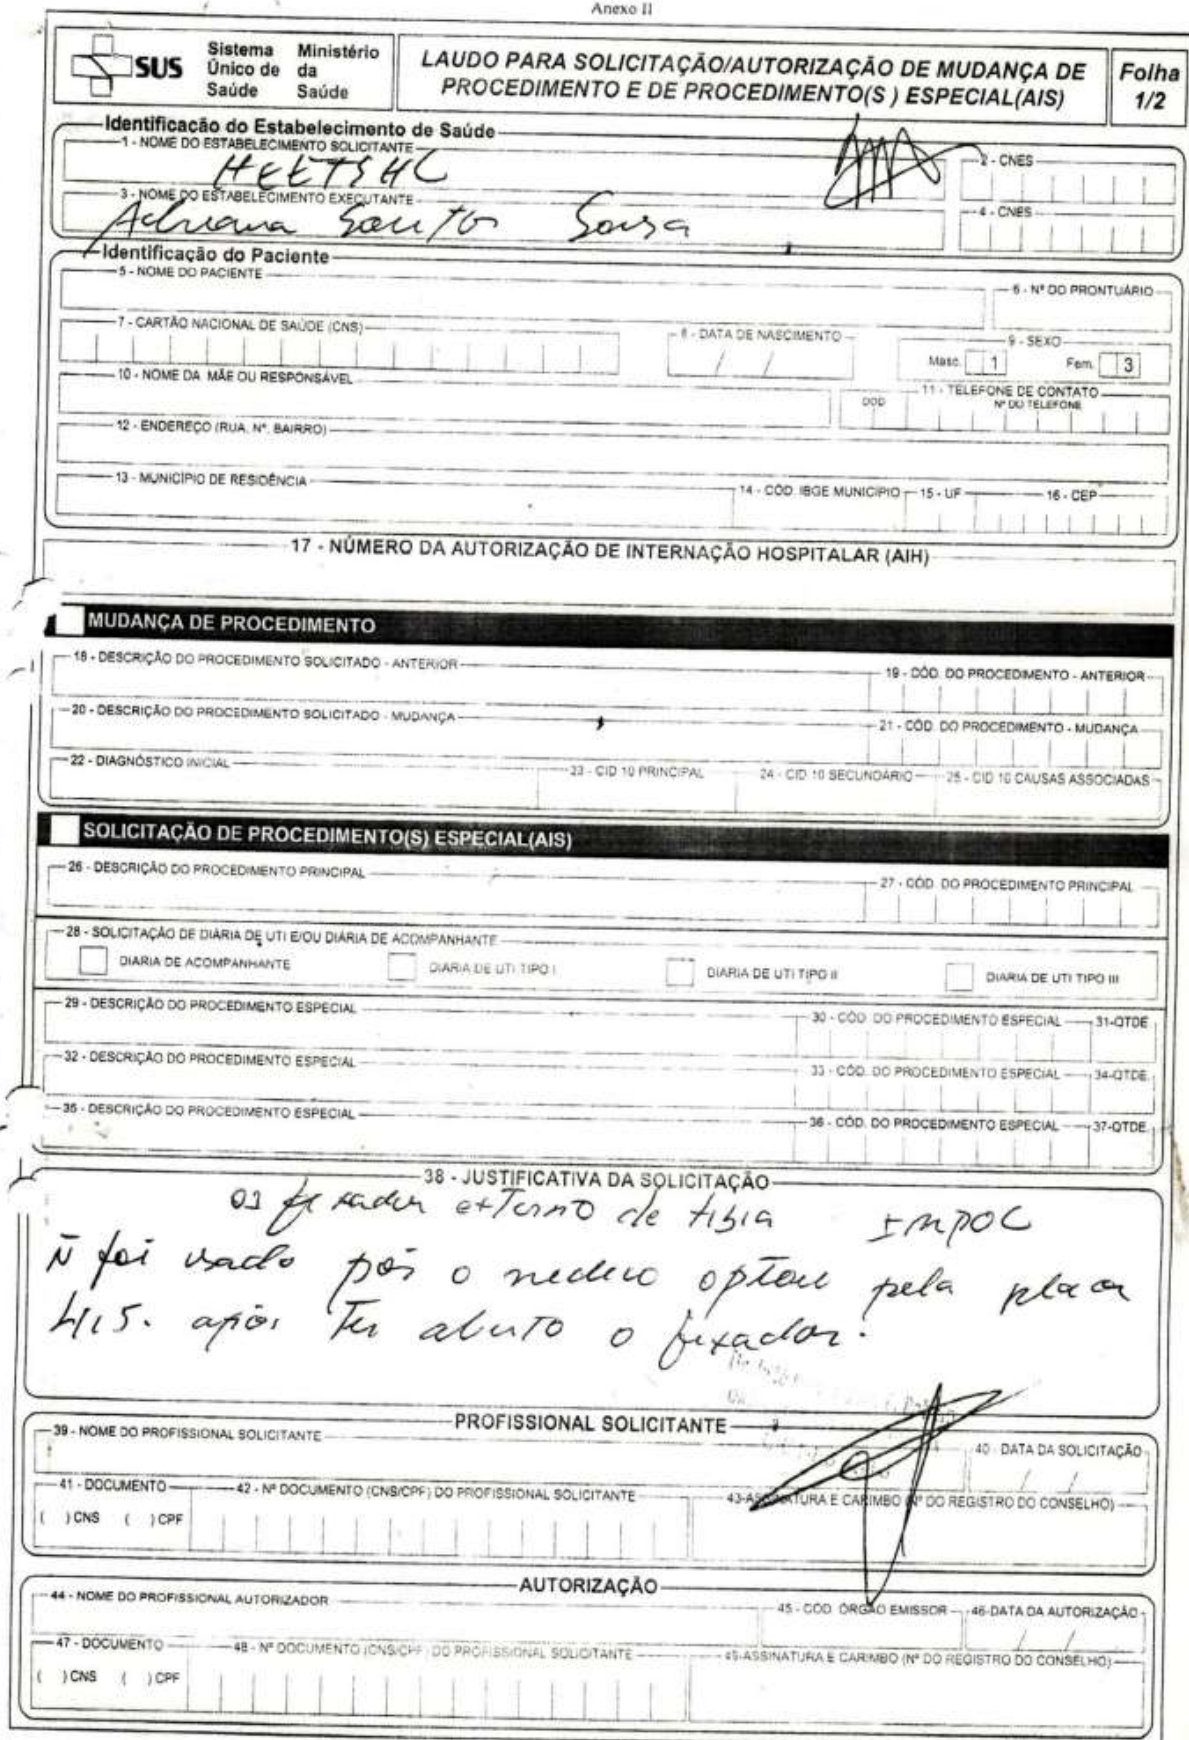 Anexo II
SUS
Sistema Único de Saúde
Ministério da Saúde
LAUDO PARA SOLICITAÇÃO/AUTORIZAÇÃO DE MUDANÇA DE
PROCEDIMENTO E DE PROCEDIMENTO(S ) ESPECIAL(AIS)
Folha
1/2
Identificação do Estabelecimento de Saúde
1 - NOME DO ESTABELECIMENTO SOLICITANTE
2 - CNES
HEETSHL
3 - NOME DO ESTABELECIMENTO EXECUTANTE
4 - CNES
Adriana Souto Sousa
Identificação do Paciente
5 - NOME DO PACIENTE
6 - Nº DO PRONTUÁRIO
7 - CARTÃO NACIONAL DE SAÚDE (CNS)
8 - DATA DE NASCIMENTO
9 - SEXO
/ /
Masc. 1 Fem. 3
10 - NOME DA MÃE OU RESPONSÁVEL
11 - TELEFONE DE CONTATO
DDD Nº DO TELEFONE
12 - ENDEREÇO (RUA, Nº, BAIRRO)
13 - MUNICÍPIO DE RESIDÊNCIA
14 - CÓD. IBGE MUNICÍPIO
15 - UF
16 - CEP
17 - NÚMERO DA AUTORIZAÇÃO DE INTERNAÇÃO HOSPITALAR (AIH)
MUDANÇA DE PROCEDIMENTO
18 - DESCRIÇÃO DO PROCEDIMENTO SOLICITADO - ANTERIOR
19 - CÓD. DO PROCEDIMENTO - ANTERIOR
20 - DESCRIÇÃO DO PROCEDIMENTO SOLICITADO - MUDANÇA
21 - CÓD. DO PROCEDIMENTO - MUDANÇA
22 - DIAGNÓSTICO INICIAL
23 - CID 10 PRINCIPAL
24 - CID 10 SECUNDÁRIO
25 - CID 10 CAUSAS ASSOCIADAS
SOLICITAÇÃO DE PROCEDIMENTO(S) ESPECIAL(AIS)
26 - DESCRIÇÃO DO PROCEDIMENTO PRINCIPAL
27 - CÓD. DO PROCEDIMENTO PRINCIPAL
28 - SOLICITAÇÃO DE DIÁRIA DE UTI E/OU DIÁRIA DE ACOMPANHANTE
DIARIA DE ACOMPANHANTE
DIARIA DE UTI TIPO I
DIARIA DE UTI TIPO II
DIARIA DE UTI TIPO III
29 - DESCRIÇÃO DO PROCEDIMENTO ESPECIAL
30 - CÓD. DO PROCEDIMENTO ESPECIAL
31-QTDE
32 - DESCRIÇÃO DO PROCEDIMENTO ESPECIAL
33 - CÓD. DO PROCEDIMENTO ESPECIAL
34-QTDE
35 - DESCRIÇÃO DO PROCEDIMENTO ESPECIAL
36 - CÓD. DO PROCEDIMENTO ESPECIAL
37-QTDE
38 - JUSTIFICATIVA DA SOLICITAÇÃO
01 fixador externo de tibia IMPOL
Ñ foi usado pois o medico optou pela placa
4,5. após ter aberto o fixador.
PROFISSIONAL SOLICITANTE
39 - NOME DO PROFISSIONAL SOLICITANTE
40 - DATA DA SOLICITAÇÃO
/ /
41 - DOCUMENTO
42 - Nº DOCUMENTO (CNS/CPF) DO PROFISSIONAL SOLICITANTE
43-ASSINATURA E CARIMBO (Nº DO REGISTRO DO CONSELHO)
( ) CNS ( ) CPF
AUTORIZAÇÃO
44 - NOME DO PROFISSIONAL AUTORIZADOR
45 - CÓD. ÓRGÃO EMISSOR
46-DATA DA AUTORIZAÇÃO
/ /
47 - DOCUMENTO
48 - Nº DOCUMENTO (CNS/CPF) DO PROFISSIONAL SOLICITANTE
49-ASSINATURA E CARIMBO (Nº DO REGISTRO DO CONSELHO)
( ) CNS ( ) CPF